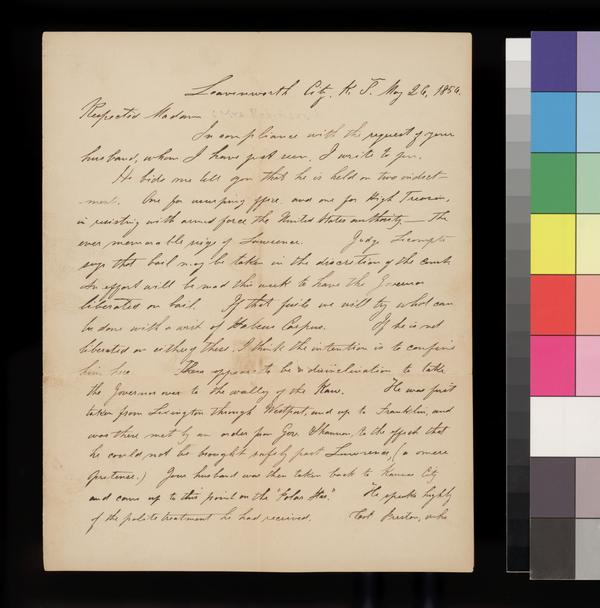 Leavenworth City, K. T. May 26, 1856.
Respected Madam
In compliance with the request of your
husband, whom I have just seen, I write to you.
He bids me tell you that he is held on two indict-
-ment. One for usurping office, and one for High Treason,
in resisting with armed force the United States authority — the
ever memorable siege of Lawrence. Judge Lecompte
says that bail may be taken in the discretion of the court.
An effort will be mad this week to have the Governor
liberated on bail. If that fails we will try what can
be done with a writ of Habeus Corpus. If he is not
liberated on either of these, I think the intention is to confine
him here. There appears to be a disinclination to take
the Governor over to the valley of the Kaw. He was first
taken from Lexington through Westport, and up to Franklin, and
was there met by an order from Gov. Shannon, to the effect that
he could not be brought safely past Lawrence, (a mere
pretense.) Your husband was then taken back to Kansas City
and came up to this point on the "Polar Star". He speaks highly
of the polite treatment he had received. Capt Preston, who